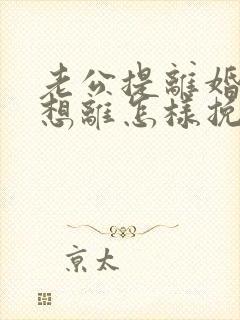 老公提離婚
想離怎樣挽
京太